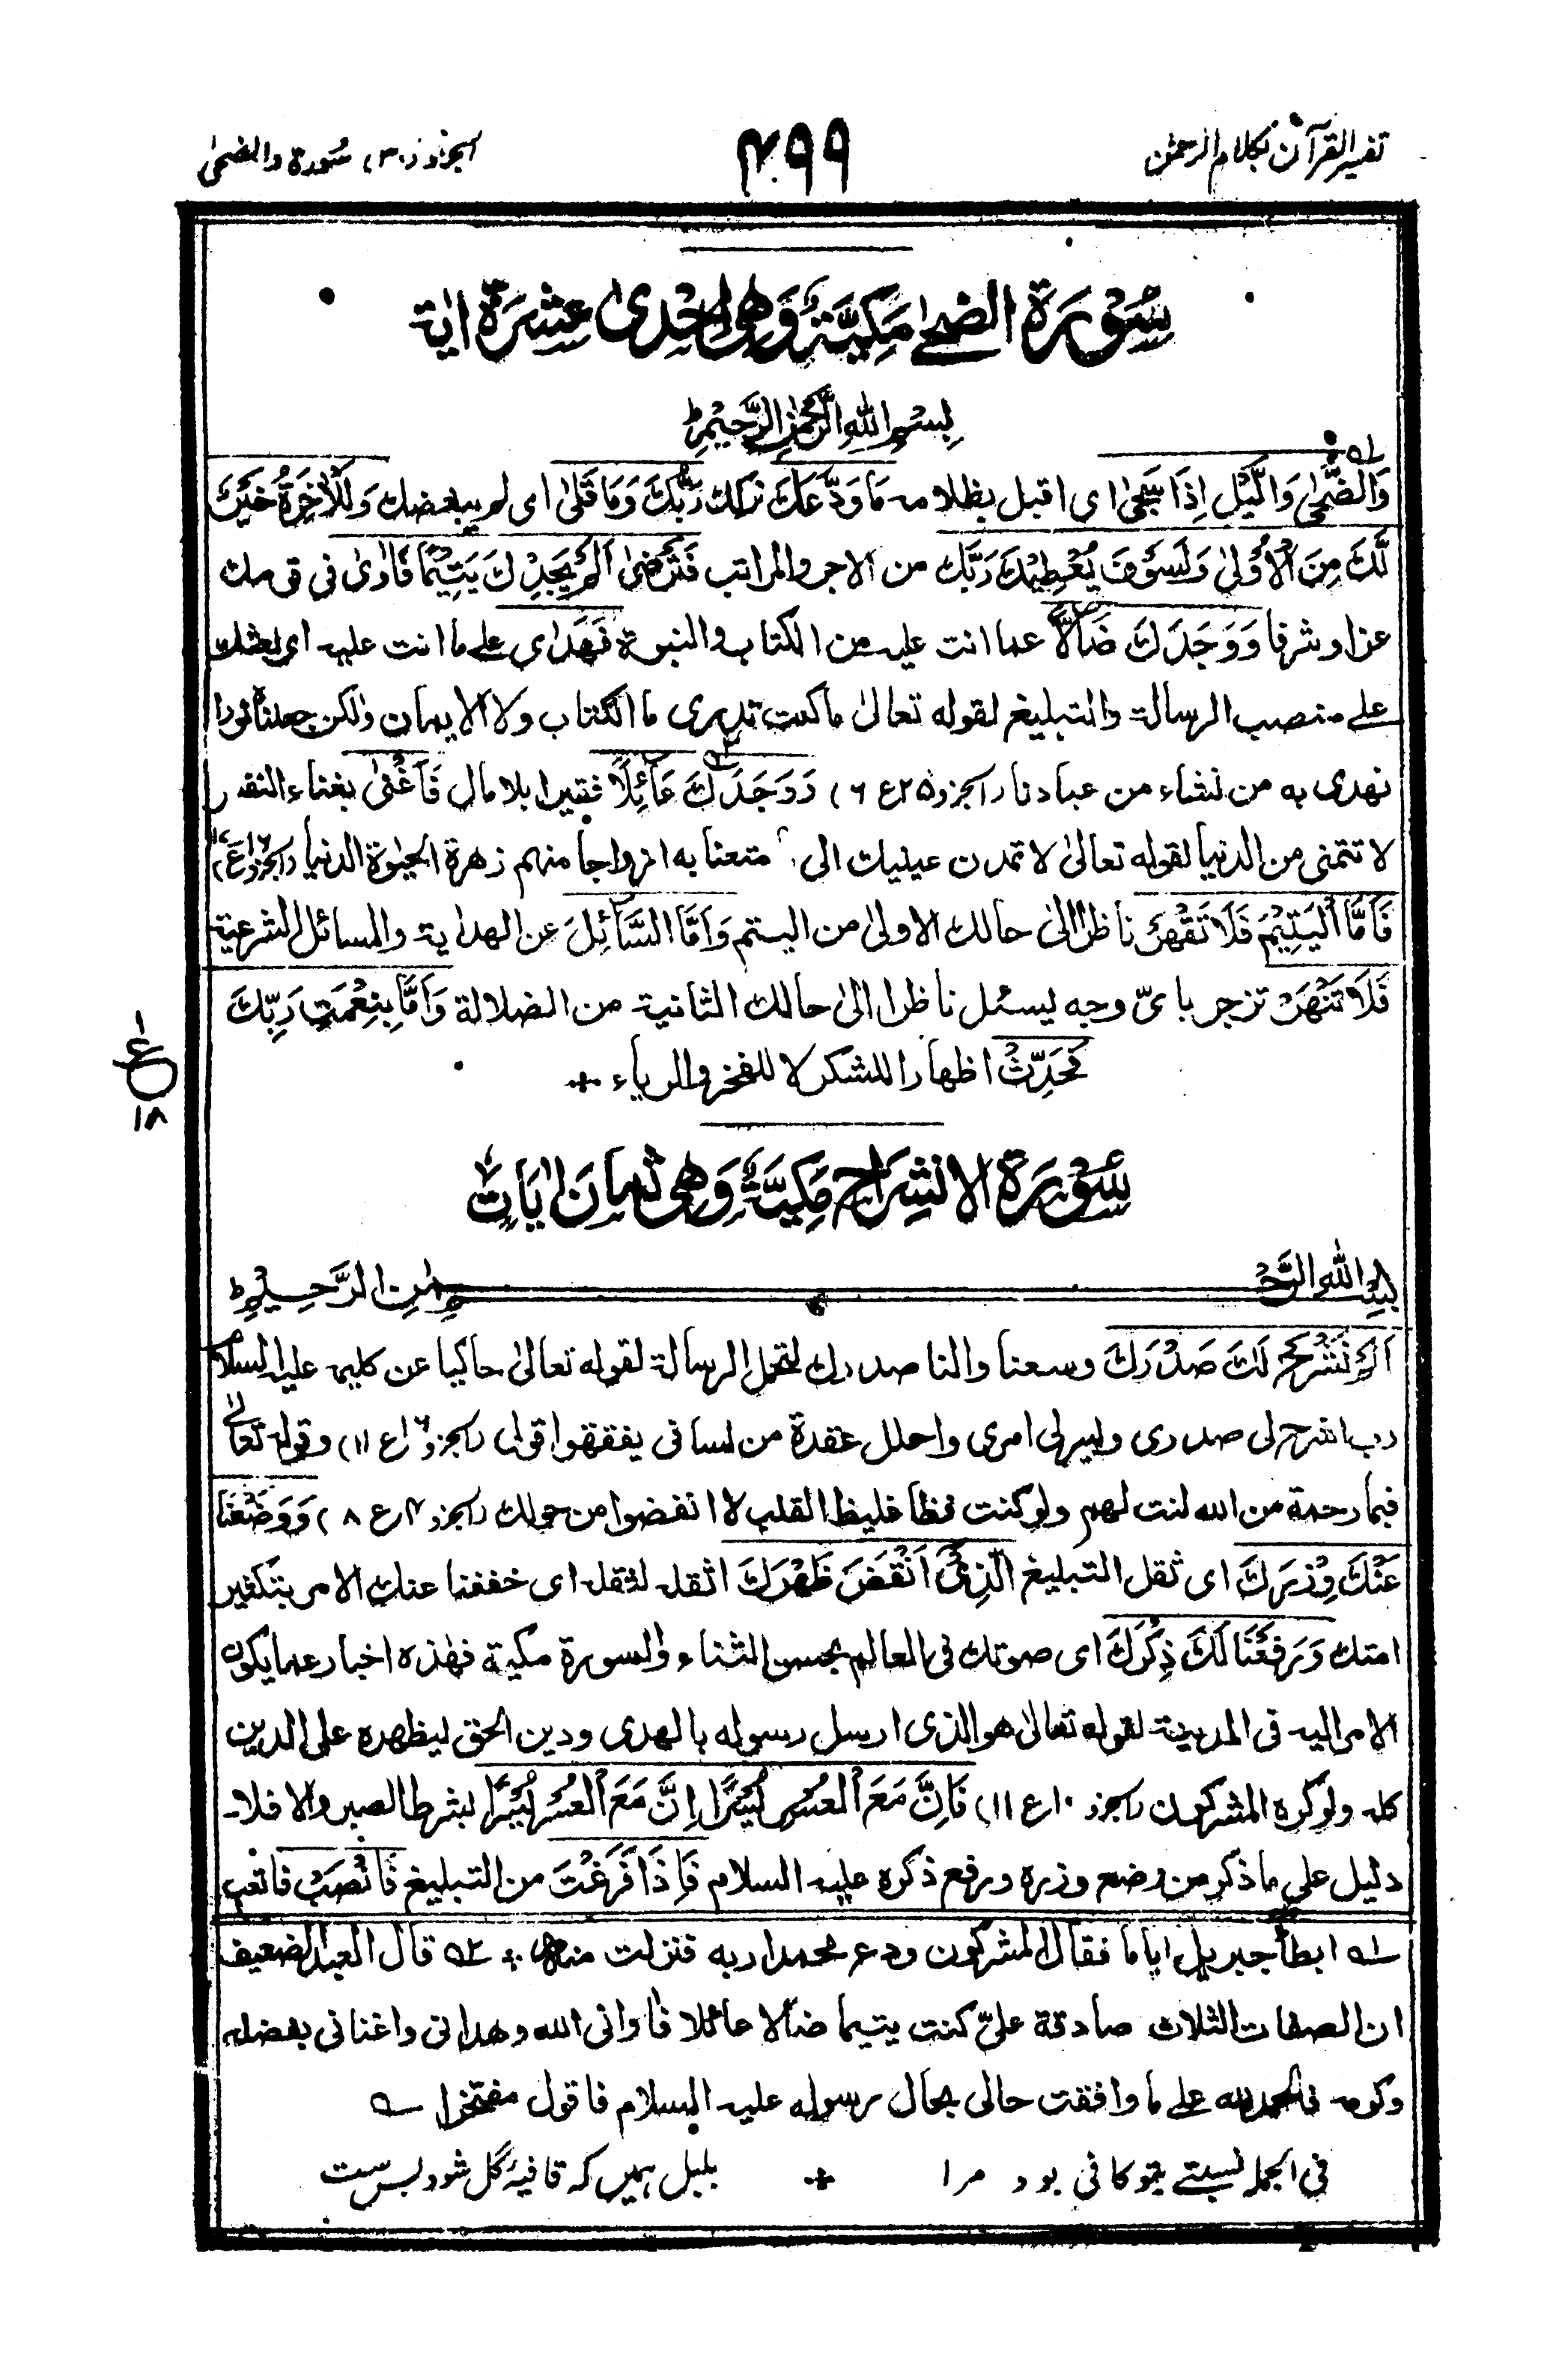 تفسیر القرآن بکلام الرحمٰن
۴۹۹
الجزو (۳۰) سُورة والضحٰی
سُوْرَة الضحٰے مَکِیَّۃٌ وَهِیَ اِحْدیٰ عِشْرَةَ اٰیة
بِسْمِ اللهِ الرَّحْمٰنِ الرَّحِیْمِ
وَالضُّحٰی وَالَّیْلِ اِذَا سَجٰی ای اقبل بظلامه مَا وَدَّعَكَ ترکك رَبُّكَ وَمَا قَلٰی ای لم یبغضك وَلَلْاٰخِرَةُ خَیْرٌ
لَّكَ مِنَ الْاُوْلٰی وَلَسَوْفَ یُعْطِیْكَ رَبُّكَ من الاجر والمراتب فَتَرْضٰی اَلَمْ یَجِدْكَ یَتِیْمًا فَاٰوٰی فی قومك
عزا وشرفا وَوَجَدَكَ ضَآلًّا عما انت علیه من الکتاب والنبوة فَهَدٰی ای علے ما انت علیه ای بعثك
علے منصب الرسالة والتبلیغ لقوله تعالیٰ ما کنت تدری ما الکتاب ولا الایمان ولکن جعلناه نورا
نهدی به من نشاء من عبادنا (الجزو ۲۵ ع ۶) وَوَجَدَكَ عَآئِلًا فقیرا بلا مال فَاَغْنٰی بغناء النفس
لا تتمنی من الدنیا لقوله تعالیٰ لا تمدن عینیك الی ما متعنا به ازواجا منهم زهرة الحیٰوة الدنیا (الجزو ۱۶ ع ۱۷)
فَاَمَّا الْیَتِیْمَ فَلَا تَقْهَرْ ناظرا الیٰ حالك الاولیٰ من الیتم وَاَمَّا السَّآئِلَ عن الهدایة والمسائل الشرعیة
فَلَا تَنْهَرْ تزجر بایّ وجه لیسئل ناظرا الیٰ حالك الثانیة من الضلالة وَاَمَّا بِنِعْمَتِ رَبِّكَ
فَحَدِّثْ اظهارا للشکر لا للفخر والریاء
ع ۱
۱۸
سُوْرَة الانشِرَاح مَکِیَّۃٌ وَهِیَ ثمان اٰیَات
بِسْمِ اللهِ الرَّحْمٰنِ الرَّحِیْمِ
اَلَمْ نَشْرَحْ لَكَ صَدْرَكَ وسعنا والنا صدرك لتحمل الرسالة لقوله تعالیٰ حاکیا عن کلیمه علیه السلام
رب اشرح لی صدری ویسر لی امری واحلل عقدة من لسانی یفقهوا قولی (الجزو ۱۶ ع ۱۱) وقوله تعالیٰ
فبما رحمة من الله لنت لهم ولو کنت فظا غلیظ القلب لا انفضوا من حولك (الجزو ۴ ع ۸) وَوَضَعْنَا
عَنْكَ وِزْرَكَ ای ثقل التبلیغ الَّذِیْٓ اَنْقَضَ ظَهْرَكَ اثقله لثقله ای خففنا عنك الامر بتکثیر
امتك وَرَفَعْنَا لَكَ ذِکْرَكَ ای صوتك فی العالم بحسن الثناء والسورة مکیة فهٰذه اخبار عما یکون
الامر الیه فی المدینة لقوله تعالیٰ هو الذی ارسل رسوله بالهدی ودین الحق لیظهره علی الدین
کله ولو کره المشرکون (الجزو ۱۰ ع ۱۱) فَاِنَّ مَعَ الْعُسْرِ یُسْرًا اِنَّ مَعَ الْعُسْرِ یُسْرًا بشرط الصبر والا فلا
دلیل علی ما ذکر من وضع وزره ورفع ذکره علیه السلام فَاِذَا فَرَغْتَ من التبلیغ فَانْصَبْ فاتعب
۱؎ ابطأ جبریل ایاما فقال المشرکون ودع محمدا ربه فنزلت منه ۲؎ قال العبد الضعیف
ان الصفات الثلاث صادقة علیّ کنت یتیما ضآلا عائلا فاٰوانی الله وهدانی واغنانی بفضله
وکرمه فالحمد لله علے ما وافقت حالی بحال رسوله علیه السلام فاقول مفتخرا
فی الجمله نسبتے بتو کافی بود مرا بلبل همیں که قافیۂ گل شود بس ست